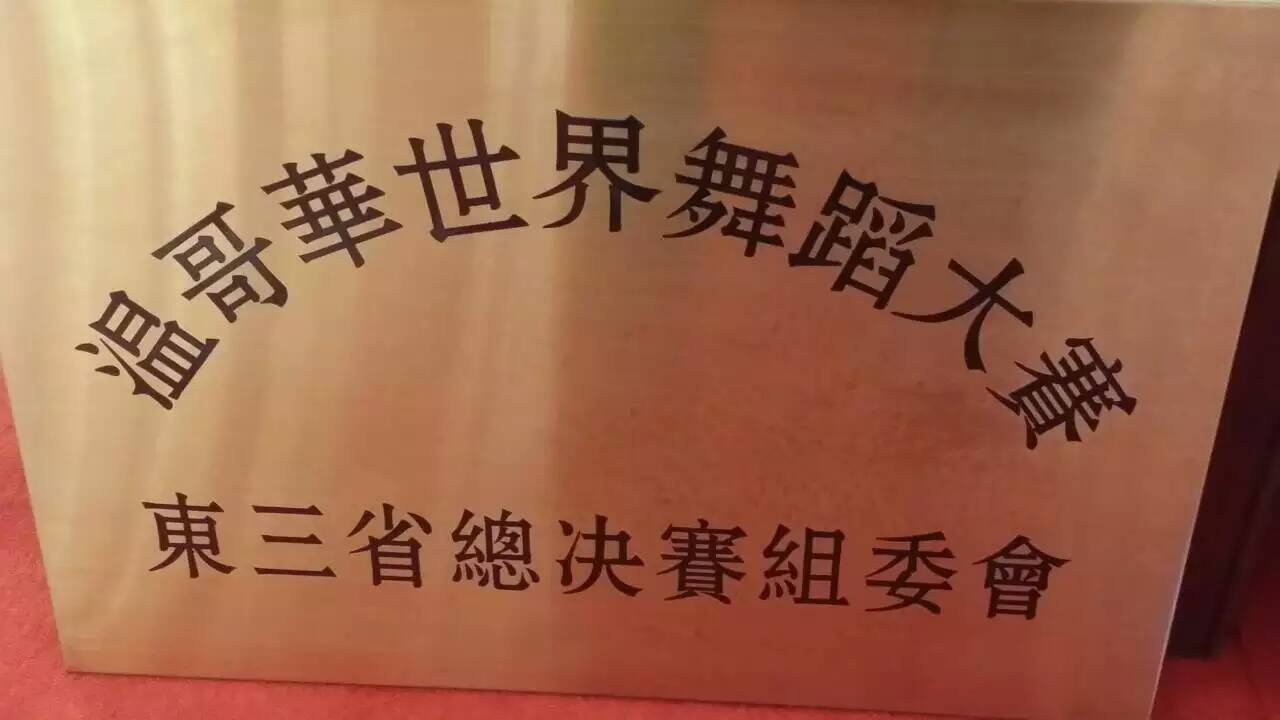 温哥華世界舞蹈大賽
東三省總决賽組委會